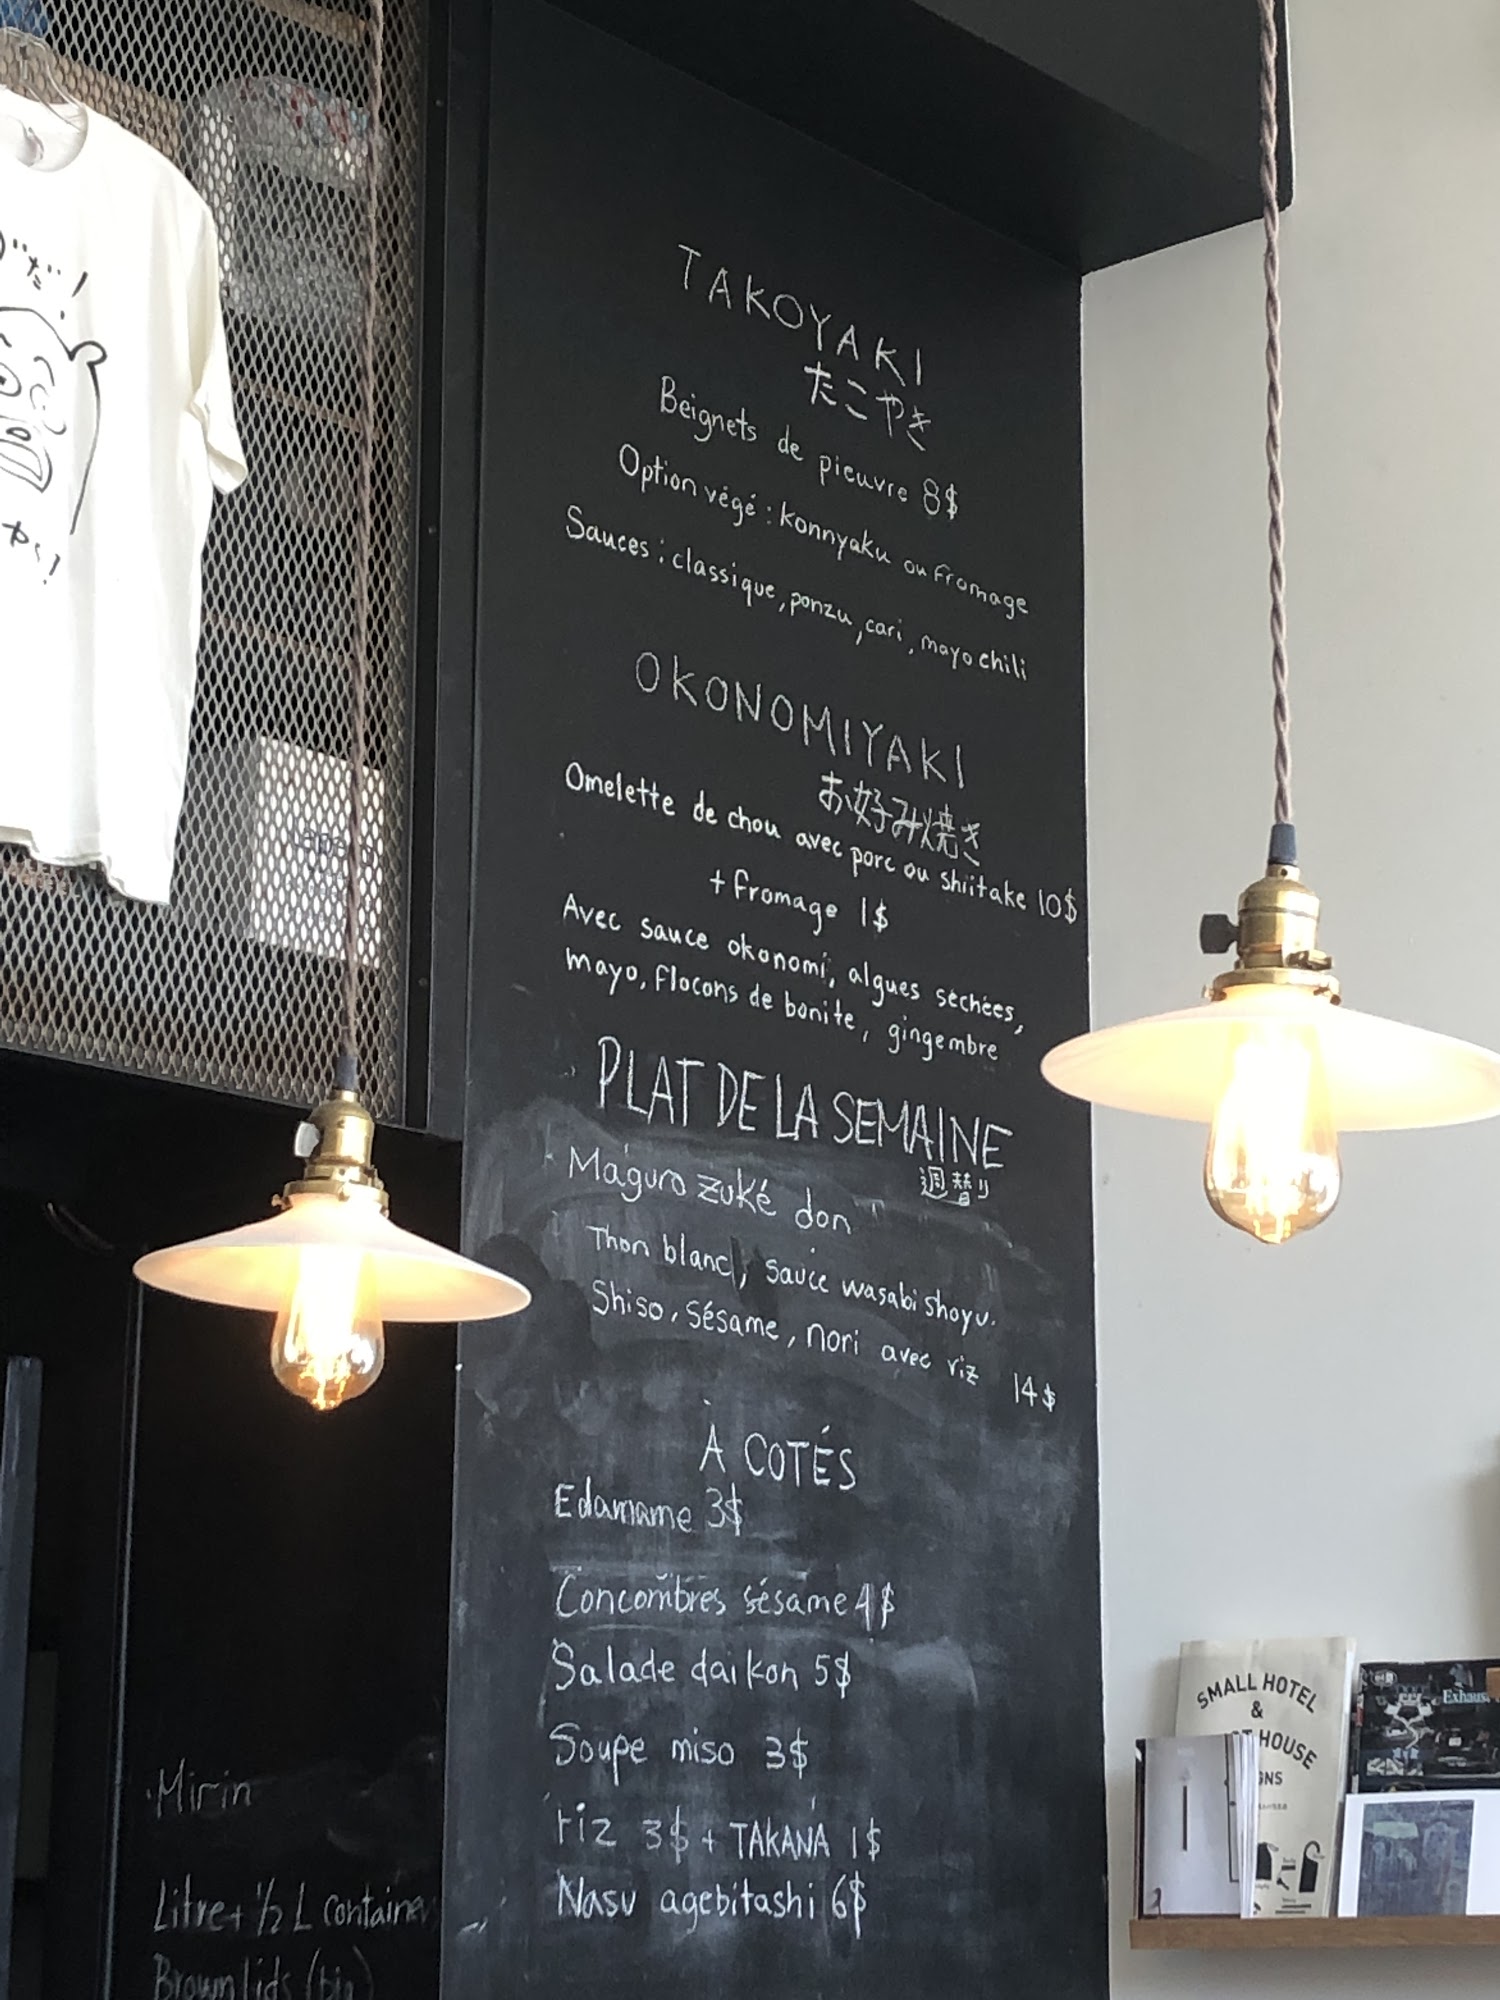 TAKOYAKI
たこやき
Beignets de pieuvre 8$
Option végé : konnyaku ou fromage
Sauces : classique, ponzu, cari, mayo chili
OKONOMIYAKI
お好み焼き
Omelette de chou avec porc ou shiitake 10$
+ fromage 1$
Avec sauce okonomi, algues séchées,
mayo, flocons de bonite, gingembre
PLAT DE LA SEMAINE
週替り
Maguro zuké don
Thon blanc, sauce wasabi shoyu.
Shiso, sésame, nori avec riz 14$
À COTÉS
Edamame 3$
Concombres sésame 4$
Salade daikon 5$
Soupe miso 3$
riz 3$ + TAKANA 1$
Nasu agebitashi 6$
Mirin
Litre + 1/2 L container
Brown lids (big)
SMALL HOTEL
&
HOUSE
Exhaus